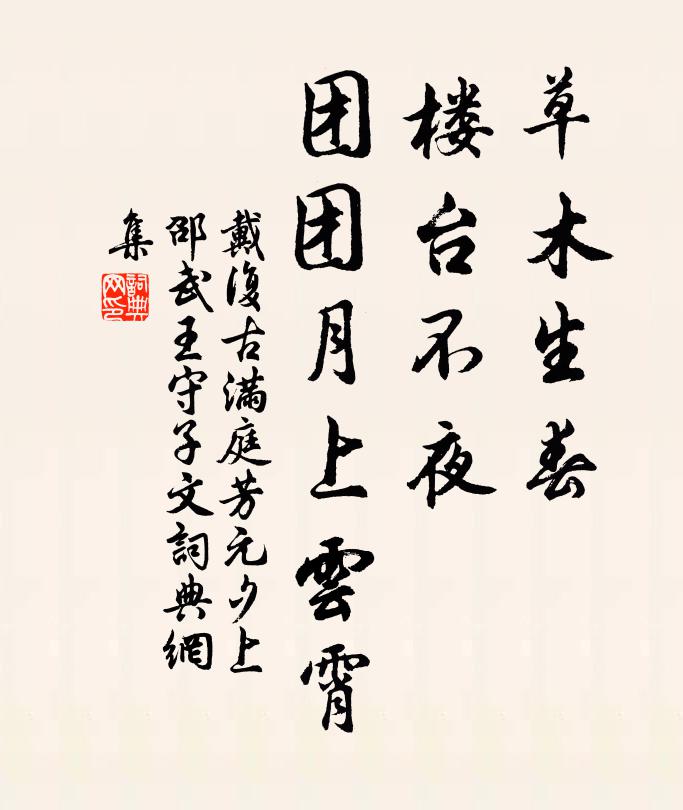 草木生春
楼台不夜
团团月上雲霄
戴復古滿庭芳元夕上
邵武王守子文詞典網
集
詞典
网印